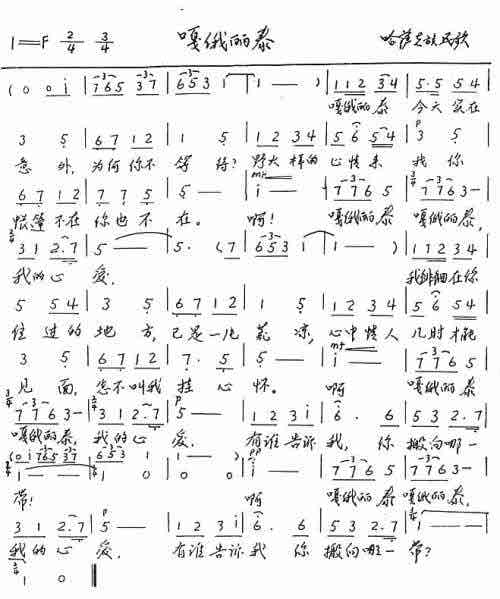 1=F 2/4 3/4 嘎俄丽泰 哈萨克族民歌
(0 0 i | 765 37 | 653 1 | 1 — ) | 112 34 | 5·5 54 |
嘎俄丽泰 今天实在
3 5 | 67 12 | 1 5 | 12 34 | 56 54 | 3 5 |
意外, 为何你不 等待? 野火样的 心情来 找你
67 12 | 7 7 5 | 5 — | i — | 7765 | 7763— |
帐篷不在 你也不在。 啊! 嘎俄丽泰 嘎俄丽泰,
31 2·7 | 5 — | 5· (7 | 653 1 | 1 — ) | 112 34 |
我的心爱, 我徘徊在你
5 54 | 3 5 | 67 12 | 1 5 | 12 34 | 56 54 |
住过的地方, 已是一片荒凉, 心中情人 几时才能
3 5 | 67 12 | 7· 5 | 5 — | i — | 7765 |
见面, 怎不叫我 挂心怀。 啊 嘎俄丽泰
7763— | 312·7 | 5 — | 123i | 6· 6 | 53 2·7 |
嘎俄丽泰, 我的心爱, 有谁告诉我, 你 搬向哪一
(0i 765 37 | 653 1 1 )
1 — — | 1 0 0 | i — | 7765 | 7763— |
带! 啊 嘎俄丽泰 嘎俄丽泰,
31 2·7 | 5 — | 12 3i | 6· 6 | 53 2·7 | 1 — — |
我的心爱, 有谁告诉我 你 搬向哪一带?
1 0 ‖